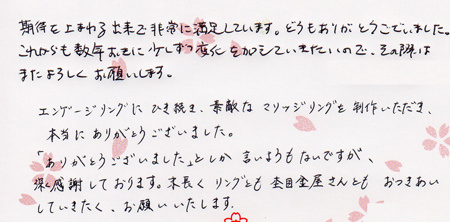 期待を上まわる出来で非常に満足しています。どうもありがとうございました。
これからも数年おきに少しずつ変化を加えていきたいので、その際は
またよろしくお願いします。
エンゲージリングにひき続き、素敵なマリッジリングを制作いただき、
本当にありがとうございました。
「ありがとうございました」としか言いようもないですが、
深く感謝しております。末長くリングとも杢目金屋さんともおつきあい
していきたく、お願いいたします。